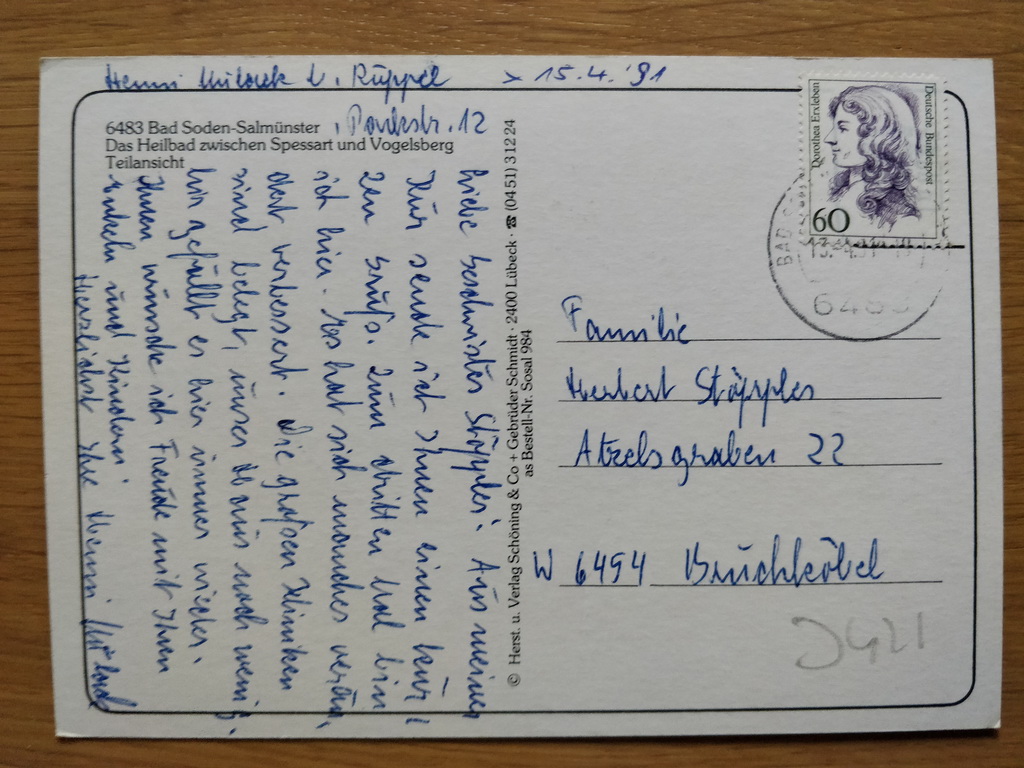 Henni Milouk b. Rüppel > 15.4.'91
6483 Bad Soden-Salmünster , Parkstr. 12
Das Heilbad zwischen Spessart und Vogelsberg
Teilansicht
Liebe Geschwister Stöppler! Aus meiner
Kur sende ich Ihnen einen kur-
zen Gruß. Zum dritten Mal bin
ich hier. Es hat sich manches verän-
dert, verbessert. Die großen Kliniken
sind belegt, unser Haus noch wenig.
Mir gefällt es hier immer wieder.
Ihnen wünsche ich Freude mit Ihren
Enkeln und Kindern
Herzlichst Ihre Henni
© Herst. u. Verlag Schöning & Co + Gebrüder Schmidt · 2400 Lübeck · ☎ (04 51) 3 12 24
as Bestell-Nr. Sosal 984
Dorothea Erxleben
Deutsche Bundespost
60
BAD
6483
Familie
Herbert Stöppler
Atzelsgraben 22
W 6454 Bruchköbel
JG21